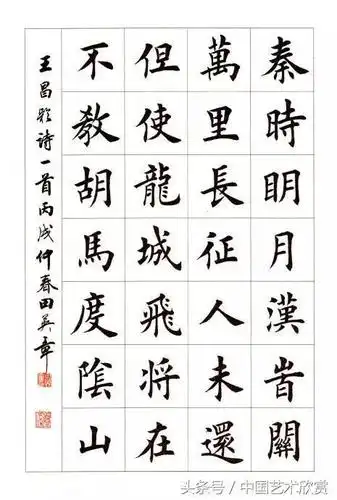 秦時眀月漢旹關
萬里長征人未還
但使龍城飛將在
不教胡馬度陰山
王昌齡詩一首丙戌仲春田英章
头条号/中国艺术欣赏